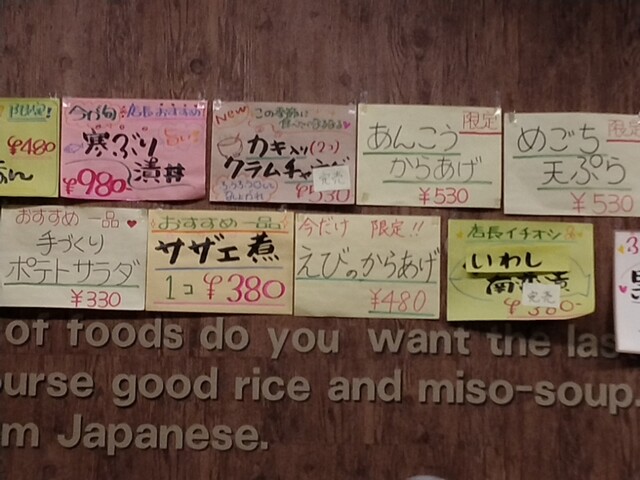 限定!
¥480
今が旬 店長おすすめ
寒ぶり
漬丼
¥980
New この季節に
カキ入り(2コ)
クラムチャウダ
完売
¥530
限定
あんこう
からあげ
¥530
限定
めごち
天ぷら
¥530
おすすめ一品
手づくり
ポテトサラダ
¥330
おすすめ一品
サザエ煮
1コ ¥380
今だけ 限定!!
えびのからあげ
¥480
店長イチオシ
いわし
南蛮漬
完売
¥380-
of foods do you want the las
ourse good rice and miso-soup.
m Japanese.